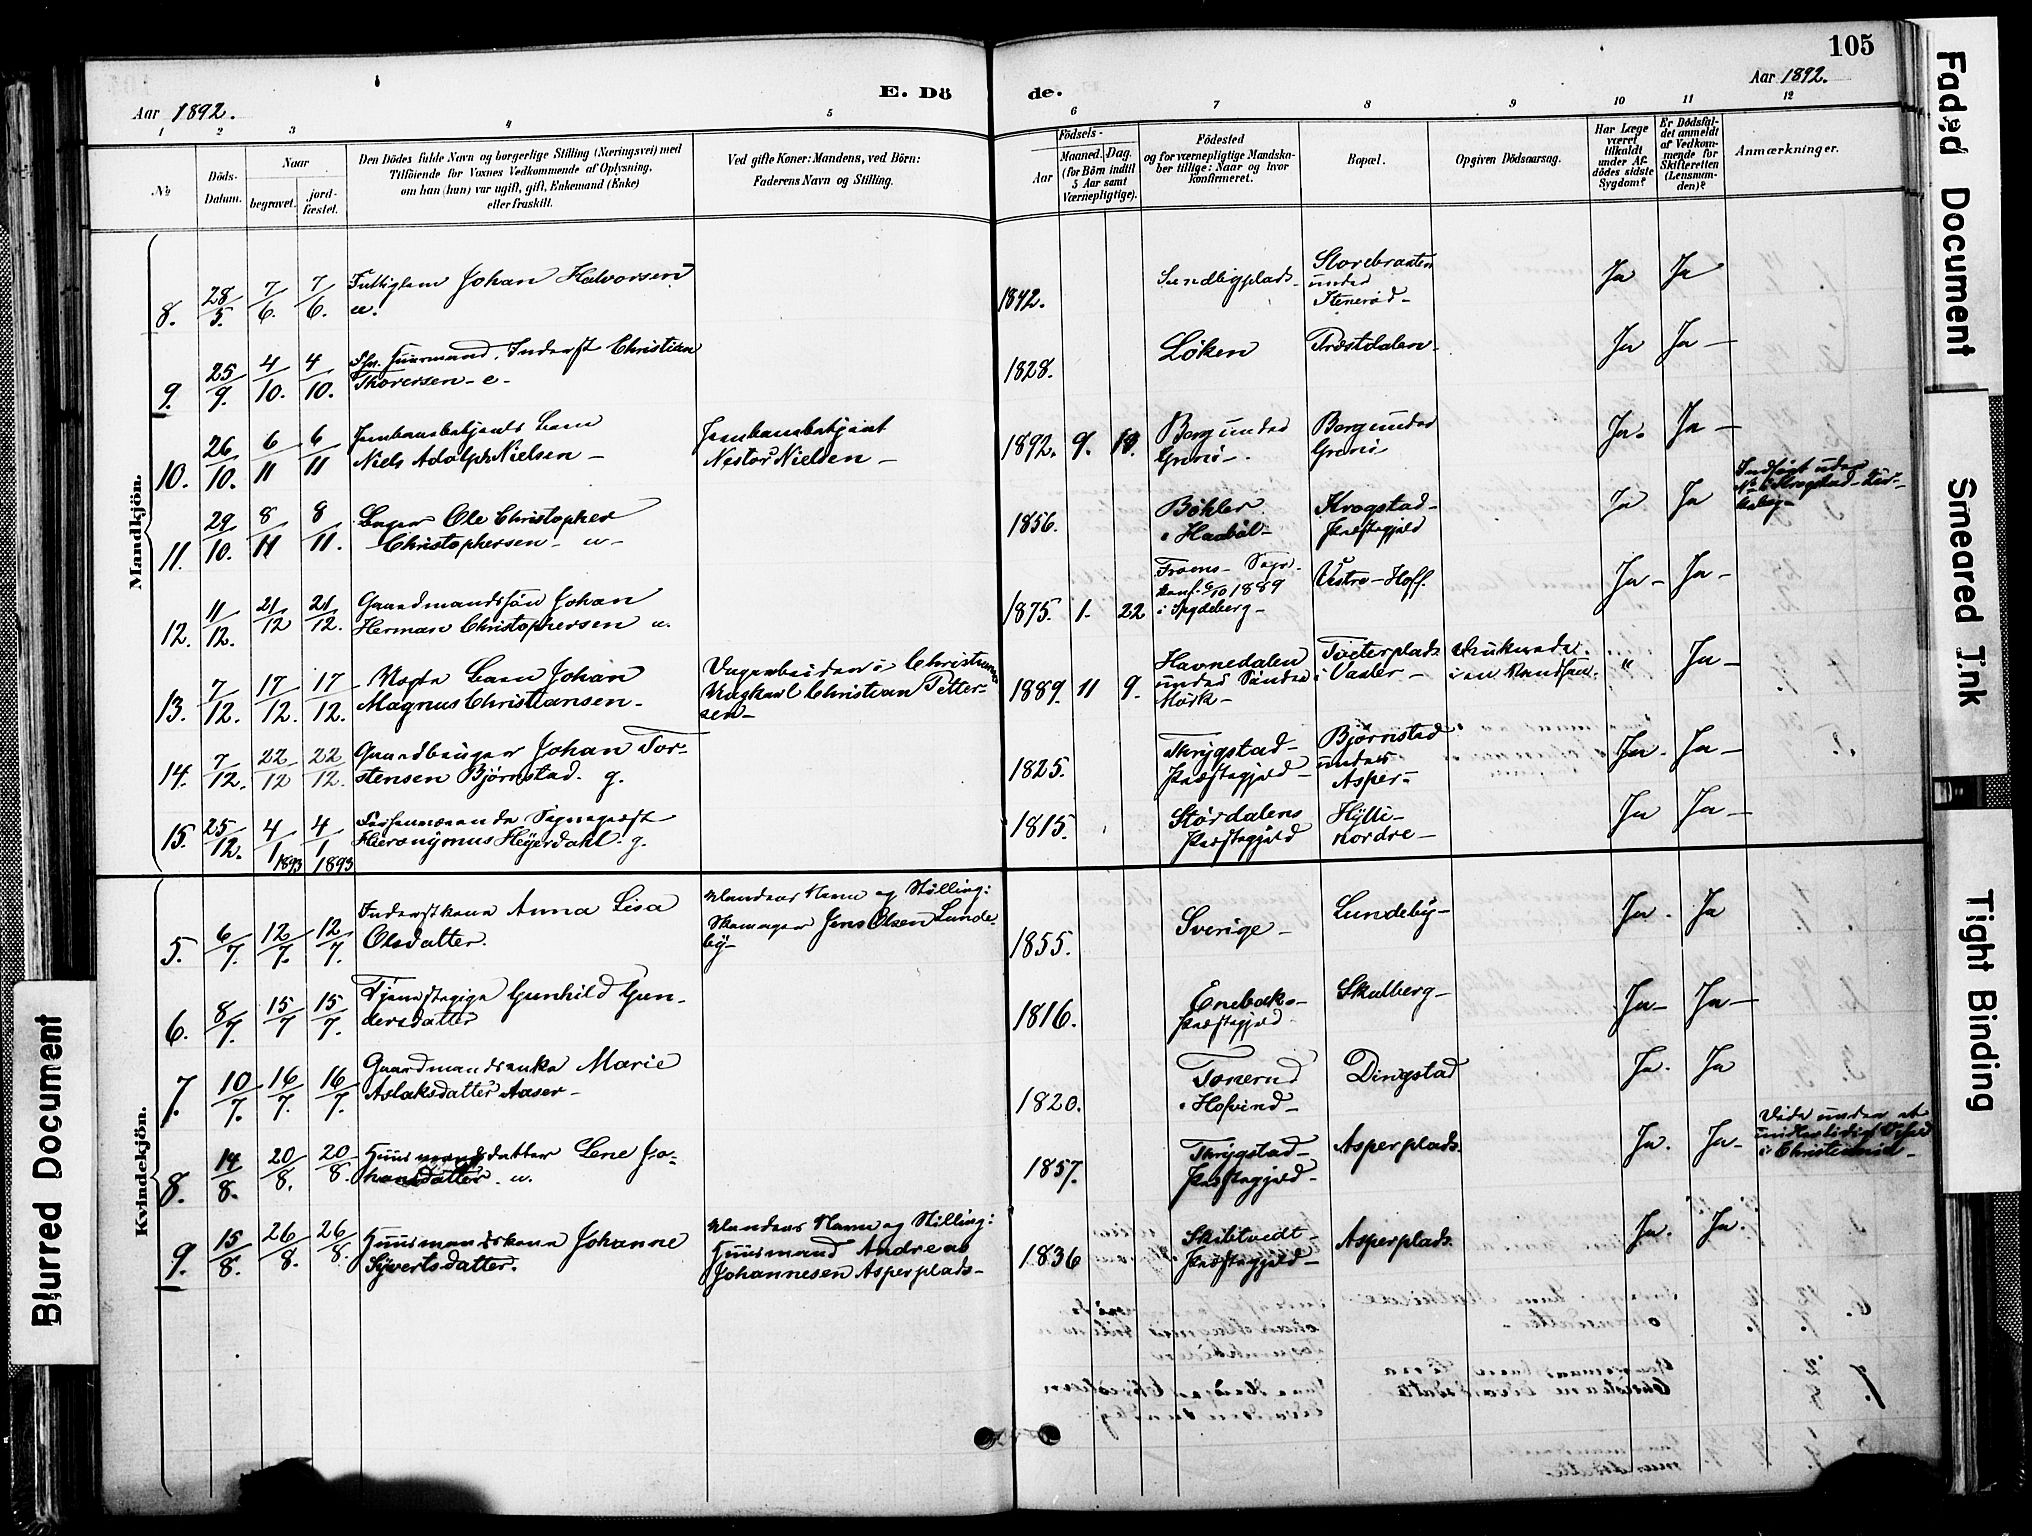 105
E. Döde.
Aar 1892.
Aar 1892.
1 2 3 4 5 6 7 8 9 10 11 12
№
Döds-Datum.
Naar
begravet.
jord-fæstet.
Den Dödes fulde Navn og borgerlige Stilling (Næringsvei) med
Tilföiende for Voxnes Vedkommende af Oplysning,
om han (hun) var ugift, gift, Enkemand (Enke)
eller fraskilt.
Ved gifte Koner: Mandens, ved Börn:
Faderens Navn og Stilling.
Födsels-
Aar
Maaned. Dag.
(for Börn indtil
5 Aar samt
Værnepligtige).
Födested
og for værnepligtige Mandska-
ber tillige: Naar og hvor
konfirmeret.
Bopæl.
Opgiven Dödsaarsag.
Har Læge
været
tilkaldt
under Af-
dödes sidste
Sygdom?
Er Dödsfal-
det anmeldt
af Vedkom-
mende for
Skifteretten
(Lensman-
den)?
Anmærkninger.
Mandkjön.
8. 28/5. 7/6. 7/6. Fattiglem Johan Halvorsen
u.
1842. Storebraaten
under
Stenerød- Ja Ja
9. 25/9. 4/10. 4/10. Fhv. Huusmand, Inderst Christian
Thoresen - e-
1828. Løken Præstdalen- Ja Ja-
10. 26/10. 6/11 6/11 Jernbanebetjents Barn
Niels Adolph Nielsen-
Jernbanebetjent
Nestor Nielsen-
1892. 9. 19. Borg under
Grønø-
Borg under
Grønø- Ja. Ja-
11. 29/10. 8/11 8/11. Bager Ole Christopher
Christophersen- u-
1856. Bøhler
i Haabøl-
Krogstad-
Præstegjeld Ja Ja
12. 11/12. 21/12 21/12. Gaardmandssøn Johan
Herman Christophersen u.
1875. 1. 22. Trøms- Sogn-
Konf. 6/10 1889
i Spydeberg-
Vestre-Hoff. Ja- Ja-
13. 7/12. 17/12. 17/12. Uægte Barn Johan
Magnus Christiansen-
Ungkarl Christian Petter-
sen-
1889. 11 9. Havnedalen
under Søndre
Mørk-
Tveterplads
i Vaaler- " Ja-
14. 7/12. 22/12 22/12. Gaardbruger Johan Tor-
stensen Bjørnstad. g.
1825. Thrygstad-
Præstegjeld-
Bjørnstad
under
Asper- Ja- Ja-
15. 25/12. 4/1 1893 4/1 1893 Forhenværende Sognepræst
Hieronymus Heyerdahl. g.
1815. Størdalens
Præstegjeld
Hylli-
nordre- Ja Ja-
Kvindekjön.
5. 6/7. 12/7. 12/7. Inderstkone Anna Lisa
Olsdatter.
Mandens Navn og Stilling:
Skomager Jens Olsen Lunde-
by-
1855. Sverige- Lundeby- Ja. Ja
6. 8/7. 15/7 15/7. Tjenestepige Gunhild Gun-
dersdatter
1816. Enebaks-
Præstegjeld. Skulberg- Ja- Ja-
7. 10/7. 16/7. 16/7. Gaardmandsenke Marie
Aslaksdatter Aaser-
1820. i Hofvind- Dingstad Ja. Ja
8. 14/8. 20/8. 20/8. Huusmandsdatter Lene Jo-
hansdatter. u.
1857. Thrygstad-
Præstegjeld- Asperplads. Ja. Ja-
Døde under et
midlertidigt Ophold
i Christiania-
9. 15/8. 26/8. 26/8. Huusmandskone Johanne
Syvertsdatter.
Mandens Navn og Stilling:
Huusmand Andreas
Johannesen Asperplads-
1836 Skibtvedt-
Præstegjeld- Asperplads. Ja. Ja.
Faded Document
Smeared Ink
Tight Binding
Blurred Document